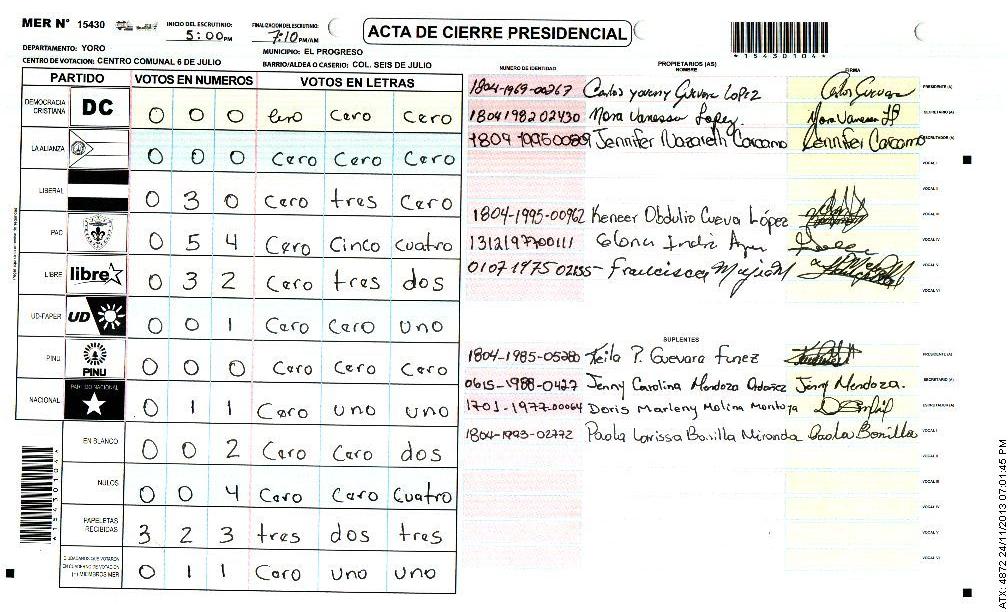 MER N° 15430
INICIO DEL ESCRUTINIO: 5:00 PM
FINALIZACION DEL ESCRUTINIO: 7:10 PM/AM
ACTA DE CIERRE PRESIDENCIAL
*15430104*
DEPARTAMENTO: YORO
MUNICIPIO: EL PROGRESO
CENTRO DE VOTACION: CENTRO COMUNAL 6 DE JULIO
BARRIO/ALDEA O CASERIO: COL. SEIS DE JULIO
PARTIDO VOTOS EN NUMEROS VOTOS EN LETRAS
DEMOCRACIA CRISTIANA DC 0 0 0 Cero Cero Cero
LA ALIANZA 0 0 0 Cero Cero Cero
LIBERAL 0 3 0 Cero tres Cero
PAC 0 5 4 Cero Cinco cuatro
LIBRE libre 0 3 2 Cero tres dos
UD-FAPER UD 0 0 1 Cero Cero uno
PINU PINU 0 0 0 Cero Cero Cero
NACIONAL PARTIDO NACIONAL 0 1 1 Cero uno uno
EN BLANCO 0 0 2 Cero Cero dos
NULOS 0 0 4 Cero Cero Cuatro
PAPELETAS RECIBIDAS 3 2 3 tres dos tres
CIUDADANOS QUE VOTARON EN CUADERNO DE VOTACION (+) MIEMBROS MER 0 1 1 Cero uno uno
NUMERO DE IDENTIDAD PROPIETARIOS (AS) NOMBRE FIRMA
1804-1969-00267 Carlos yovany Guevara Lopez Carlos Guevara PRESIDENTE (A)
1804 1982 02430 Nora Vanessa Lopez. Nora Vanessa SECRETARIO (A)
1804 1995 00809 Jennifer Nazareth Carcamo Jennifer Carcamo ESCRUTADOR (A)
VOCAL I
VOCAL II
1804-1995-00962 Keneer Obdulio Cueva López VOCAL III
1312197700111 Glona VOCAL IV
0107 1975 02155- Francisca VOCAL V
VOCAL VI
SUPLENTES
1804-1985-05280 Keila P. Guevara Funez PRESIDENTE (A)
0615-1988-0427 Jenny Carolina Mendoza Ordoñez Jenny Mendoza. SECRETARIO (A)
1701-1977-00064 Doris Marleny Molina Montoya ESCRUTADOR (A)
1804-1993-02772 Paola Larissa Bonilla Miranda Paola Bonilla VOCAL I
VOCAL II
VOCAL III
VOCAL IV
VOCAL V
VOCAL VI
ATX: 4872 24/11/2013 07:01:45 PM